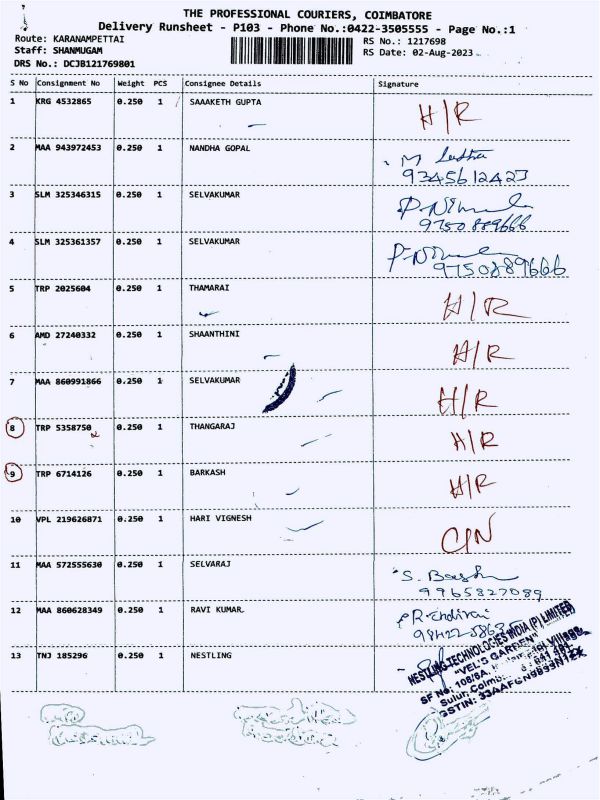 THE PROFESSIONAL COURIERS, COIMBATORE
Delivery Runsheet - P103 - Phone No.:0422-3505555 - Page No.:1
Route: KARANAMPETTAI RS No.: 1217698
Staff: SHANMUGAM RS Date: 02-Aug-2023
DRS No.: DCJB121769801
S No Consignment No Weight PCS Consignee Details Signature
1 KRG 4532865 0.250 1 SAAAKETH GUPTA H/R
2 MAA 943972453 0.250 1 NANDHA GOPAL M
9345612423
3 SLM 325346315 0.250 1 SELVAKUMAR
9750889666
4 SLM 325361357 0.250 1 SELVAKUMAR
9750889666
5 TRP 2025604 0.250 1 THAMARAI H/R
6 AMD 27240332 0.250 1 SHAANTHINI H/R
7 MAA 860991866 0.250 1 SELVAKUMAR H/R
8 TRP 5358750 0.250 1 THANGARAJ H/R
9 TRP 6714126 0.250 1 BARKASH H/R
10 VPL 219626871 0.250 1 HARI VIGNESH C/N
11 MAA 572555630 0.250 1 SELVARAJ S.
9965827089
12 MAA 860628349 0.250 1 RAVI KUMAR
13 TNJ 185296 0.250 1 NESTLING
NESTLING TECHNOLOGIES INDIA (P) LIMITED
"VEL'S GARDEN"
SF No: 108/6A,
Sulur,
GSTIN: